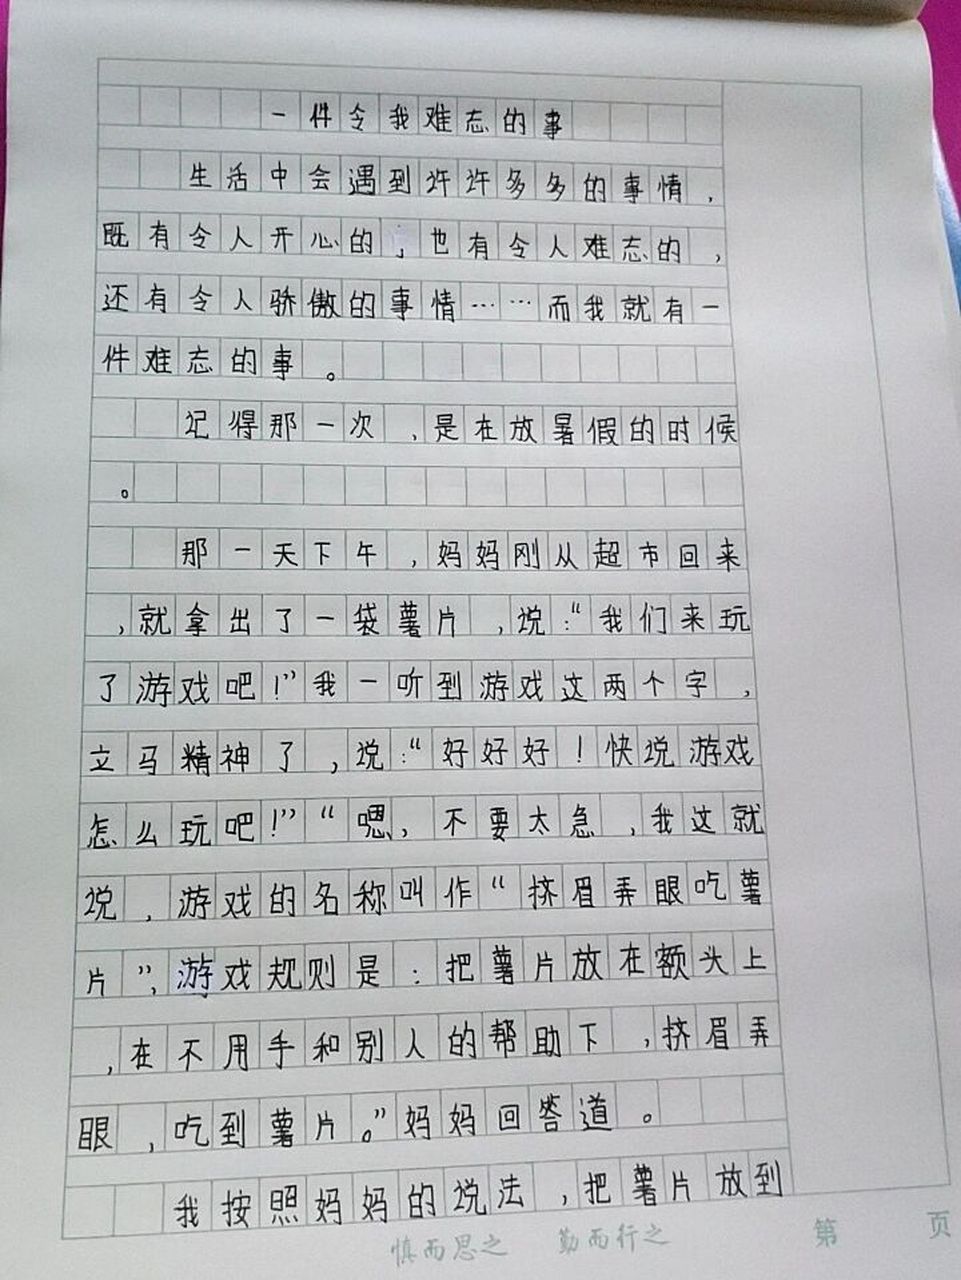 一件令我难忘的事
生活中会遇到许许多多的事情，
既有令人开心的，也有令人难忘的，
还有令人骄傲的事情……而我就有一
件难忘的事。
记得那一次，是在放暑假的时候
。
那一天下午，妈妈刚从超市回来
，就拿出了一袋薯片，说：“我们来玩
了游戏吧！”我一听到游戏这两个字，
立马精神了，说：“好好好！快说游戏
怎么玩吧！”“嗯，不要太急，我这就
说，游戏的名称叫作“挤眉弄眼吃薯
片”，游戏规则是：把薯片放在额头上
，在不用手和别人的帮助下，挤眉弄
眼，吃到薯片。”妈妈回答道。
我按照妈妈的说法，把薯片放到
慎而思之 勤而行之 第 页